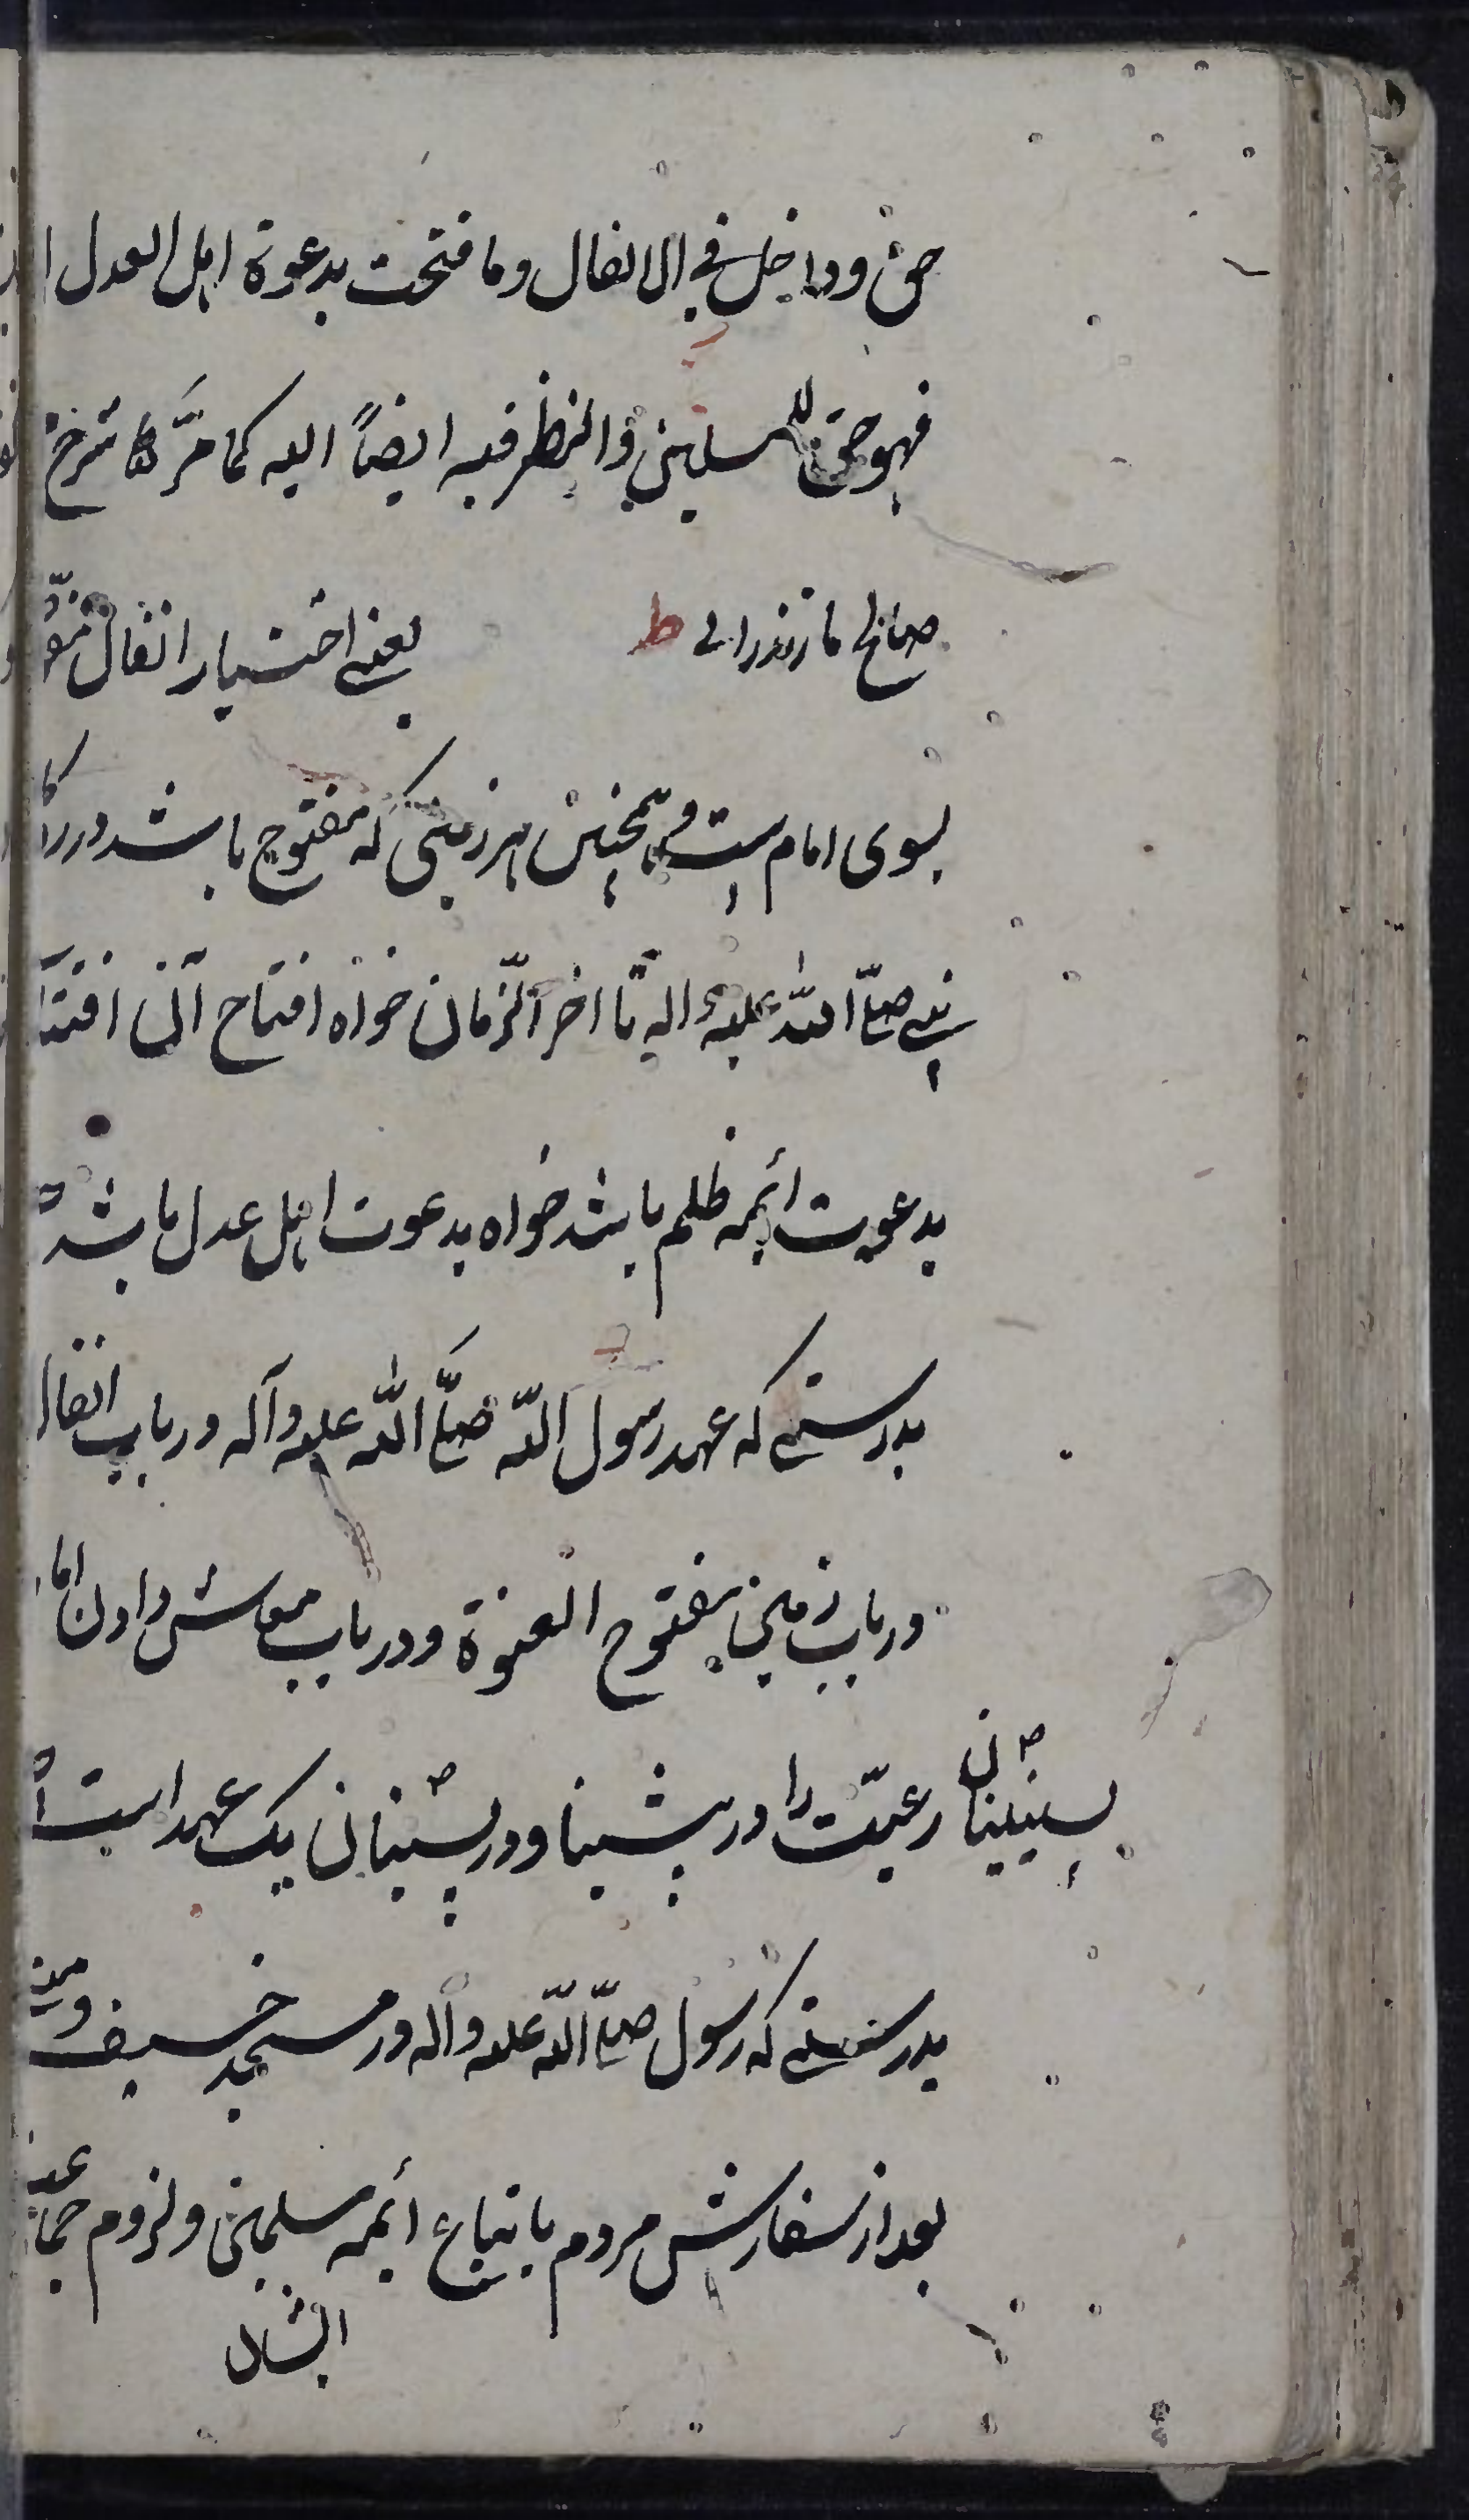 حق وداخل في الانفال وما فتحت بدعوة اهل العدل
فهو حق للمسلمين والنظر فيه ايضاً اليه كما مرّ شرح
صالح مازندرانی ط یعنی اختیار انفال
بسوی امام است و همچنین هر زمینی که مفتوح باشد در
نبی صلّی اللّه علیه واله تا اخر الزّمان خواه افتتاح آن
بدعوت ائمه ظلم باشد خواه بدعوت اهل عدل باشد
بدرستی که عهد رسول اللّه صلّی اللّه علیه وآله در باب انفال
در باب زمین مفتوح العنوة ودر باب معاش دادن
رعیّت را در پیشینیان ودر پسینیان یک عهد است
بدرستی که رسول صلّی اللّه علیه واله در مسجد خیف
بعد از سفارش مردم باتباع ائمه مسلمین ولزوم
ایشان